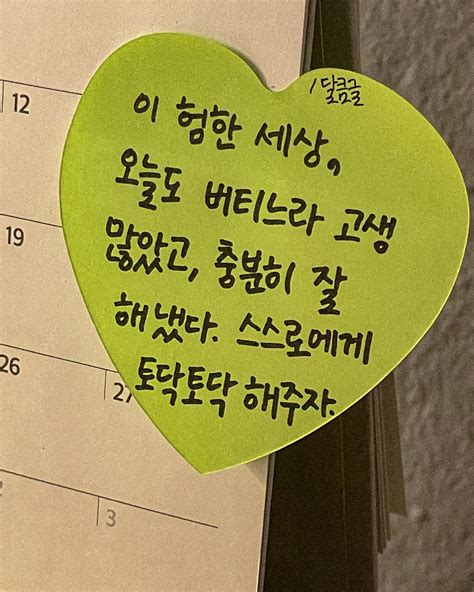 /달콤글
이 험한 세상,
오늘도 버티느라 고생
많았고, 충분히 잘
해냈다. 스스로에게
토닥토닥 해주자.
12
19
26
27
2
3